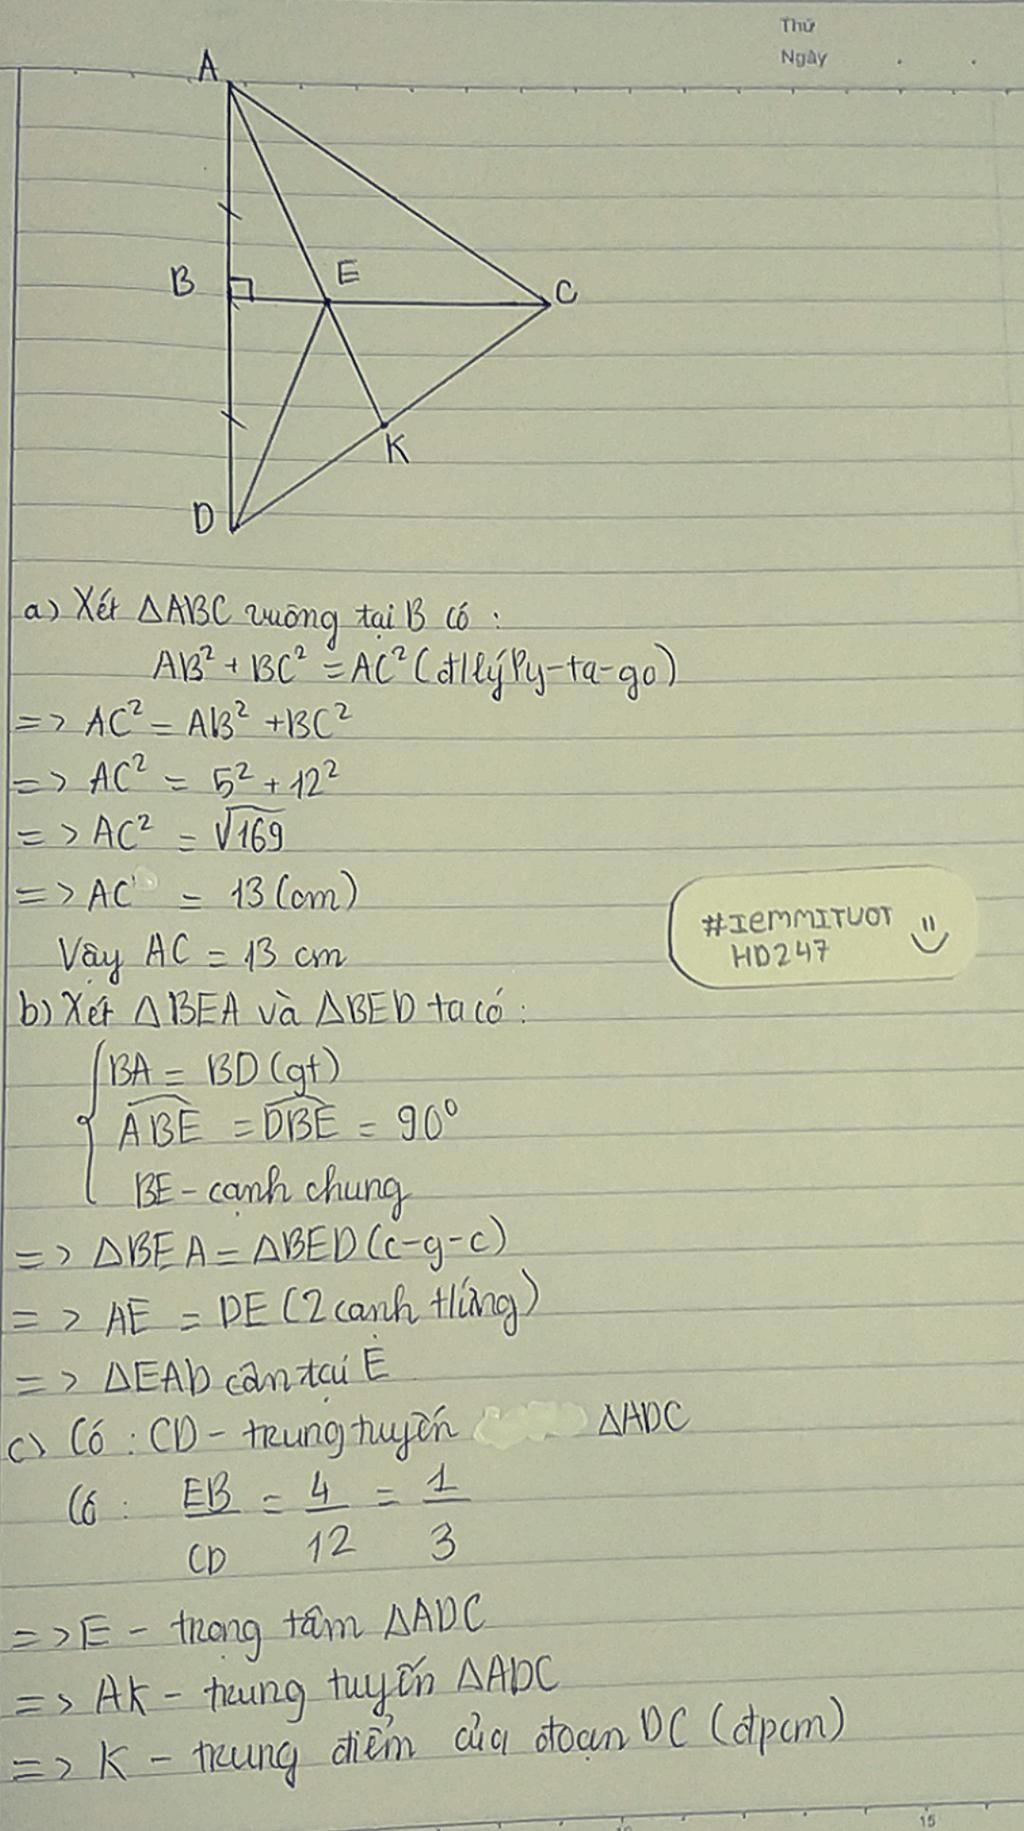 Thứ
Ngày
A
B
E
C
K
D
a) Xét ΔABC vuông tại B có :
AB² + BC² = AC² (đ/lý Py-ta-go)
=> AC² = AB² + BC²
=> AC² = 5² + 12²
=> AC² = √169
=> AC = 13 (cm)
Vậy AC = 13 cm
#IEMMITUOT
HD247
b) Xét ΔBEA và ΔBED ta có :
BA = BD (gt)
ABE = DBE = 90°
BE - cạnh chung
=> ΔBEA = ΔBED (c-g-c)
=> AE = DE (2 cạnh t/ứng)
=> ΔEAD cân tại E
c) Có : CD - trung tuyến ΔADC
Có : EB/CD = 4/12 = 1/3
=> E - trọng tâm ΔADC
=> AK - trung tuyến ΔADC
=> K - trung điểm của đoạn DC (đpcm)
15